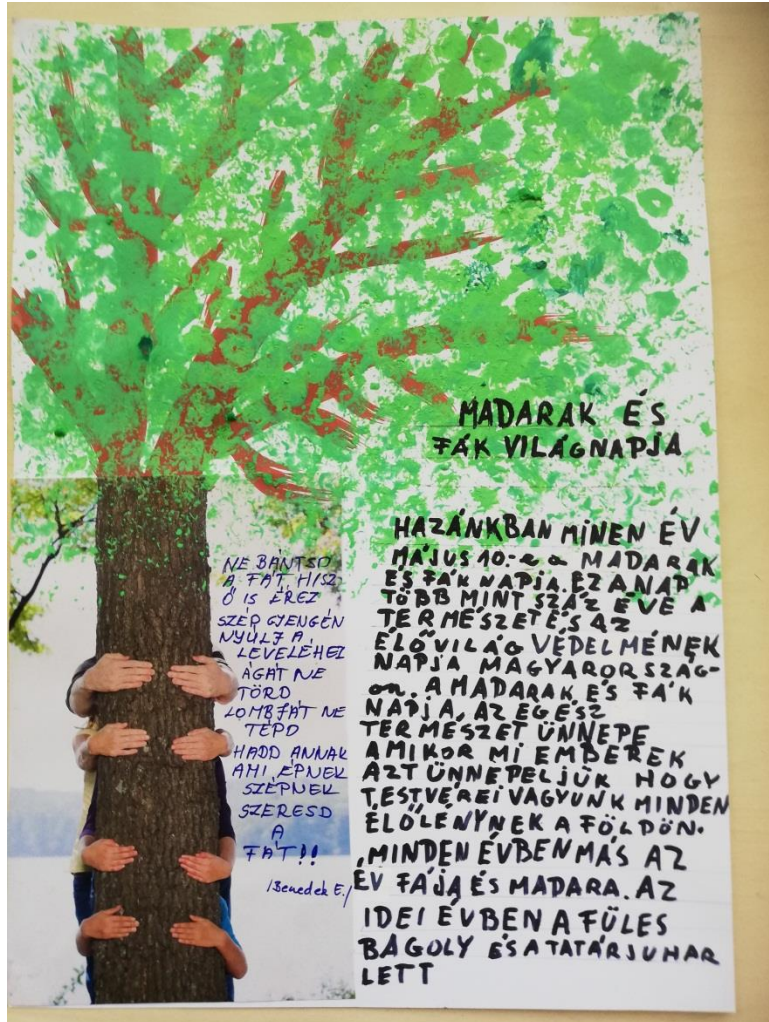 MADARAK ÉS
FÁK VILÁGNAPJA
NE BÁNTSD
A FÁT HISZ
Ő IS ÉREZ
SZÉP GYENGÉN
NYÚLJ A
LEVELÉHEZ
ÁGÁT NE
TÖRD
LOMBJÁT NE
TÉPD
HADD ANNAK
AMI ÉPNEK
SZÉPNEK
SZERESD
A
FÁT!!
/Benedek E./
HAZÁNKBAN MINEN ÉV
MÁJUS 10.-e a MADARAK
ÉS FÁK NAPJA. EZ A NAP
TÖBB MINT SZÁZ ÉVE A
TERMÉSZET ÉS AZ
ÉLŐVILÁG VÉDELMÉNEK
NAPJA MAGYARORSZÁG-
on. A MADARAK ÉS FÁK
NAPJA, AZ EGÉSZ
TERMÉSZET ÜNNEPE
AMIKOR MI EMBEREK
AZT ÜNNEPELJÜK HOGY
TESTVÉREI VAGYUNK MINDEN
ÉLŐLÉNYNEK A FÖLDÖN.
MINDEN ÉVBEN MÁS AZ
ÉV FÁJA ÉS MADARA. AZ
IDEI ÉVBEN A FÜLES
BAGOLY ÉS A TATÁRJUHAR
LETT